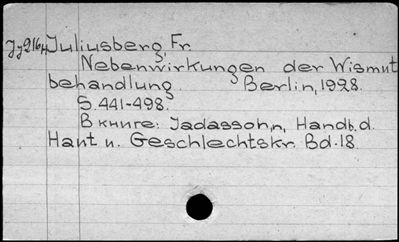 Jy216н Juliusberg, Fr.
Nebenwirkungen der Wismut
behandlung. Berlin, 1928.
S. 441-498.
В книге: Jadassohn, Handb. d.
Haut u. Geschlechtskr. Bd. 18.